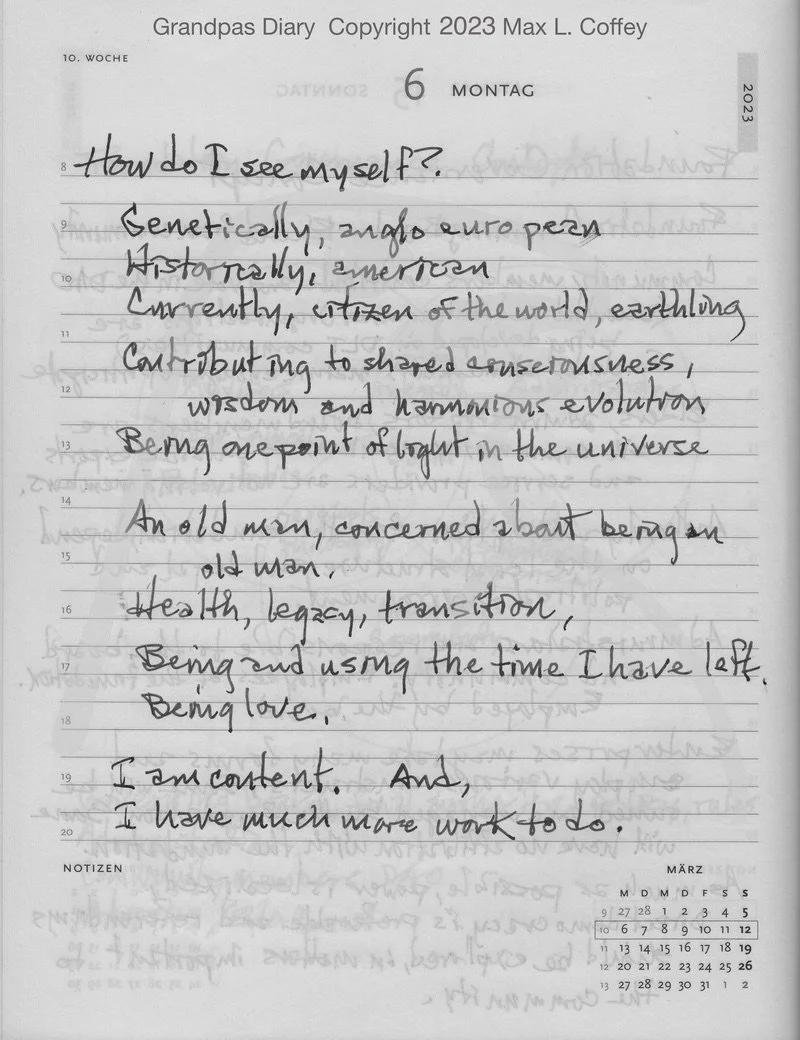 Grandpas Diary Copyright 2023 Max L. Coffey
10. WOCHE
6 MONTAG
2023
8 How do I see myself?
9 Genetically, anglo european
10 Historically, american
Currently, citizen of the world, earthling
11
Contributing to shared consciousness,
12 wisdom and harmonious evolution
13 Being one point of light in the universe
14
An old man, concerned about being an
15 old man.
16 Health, legacy, transition,
17 Being and using the time I have left.
Being love.
18
19 I am content. And,
20 I have much more work to do.
NOTIZEN
MÄRZ
M D M D F S S
9 27 28 1 2 3 4 5
10 6 7 8 9 10 11 12
11 13 14 15 16 17 18 19
12 20 21 22 23 24 25 26
13 27 28 29 30 31 1 2